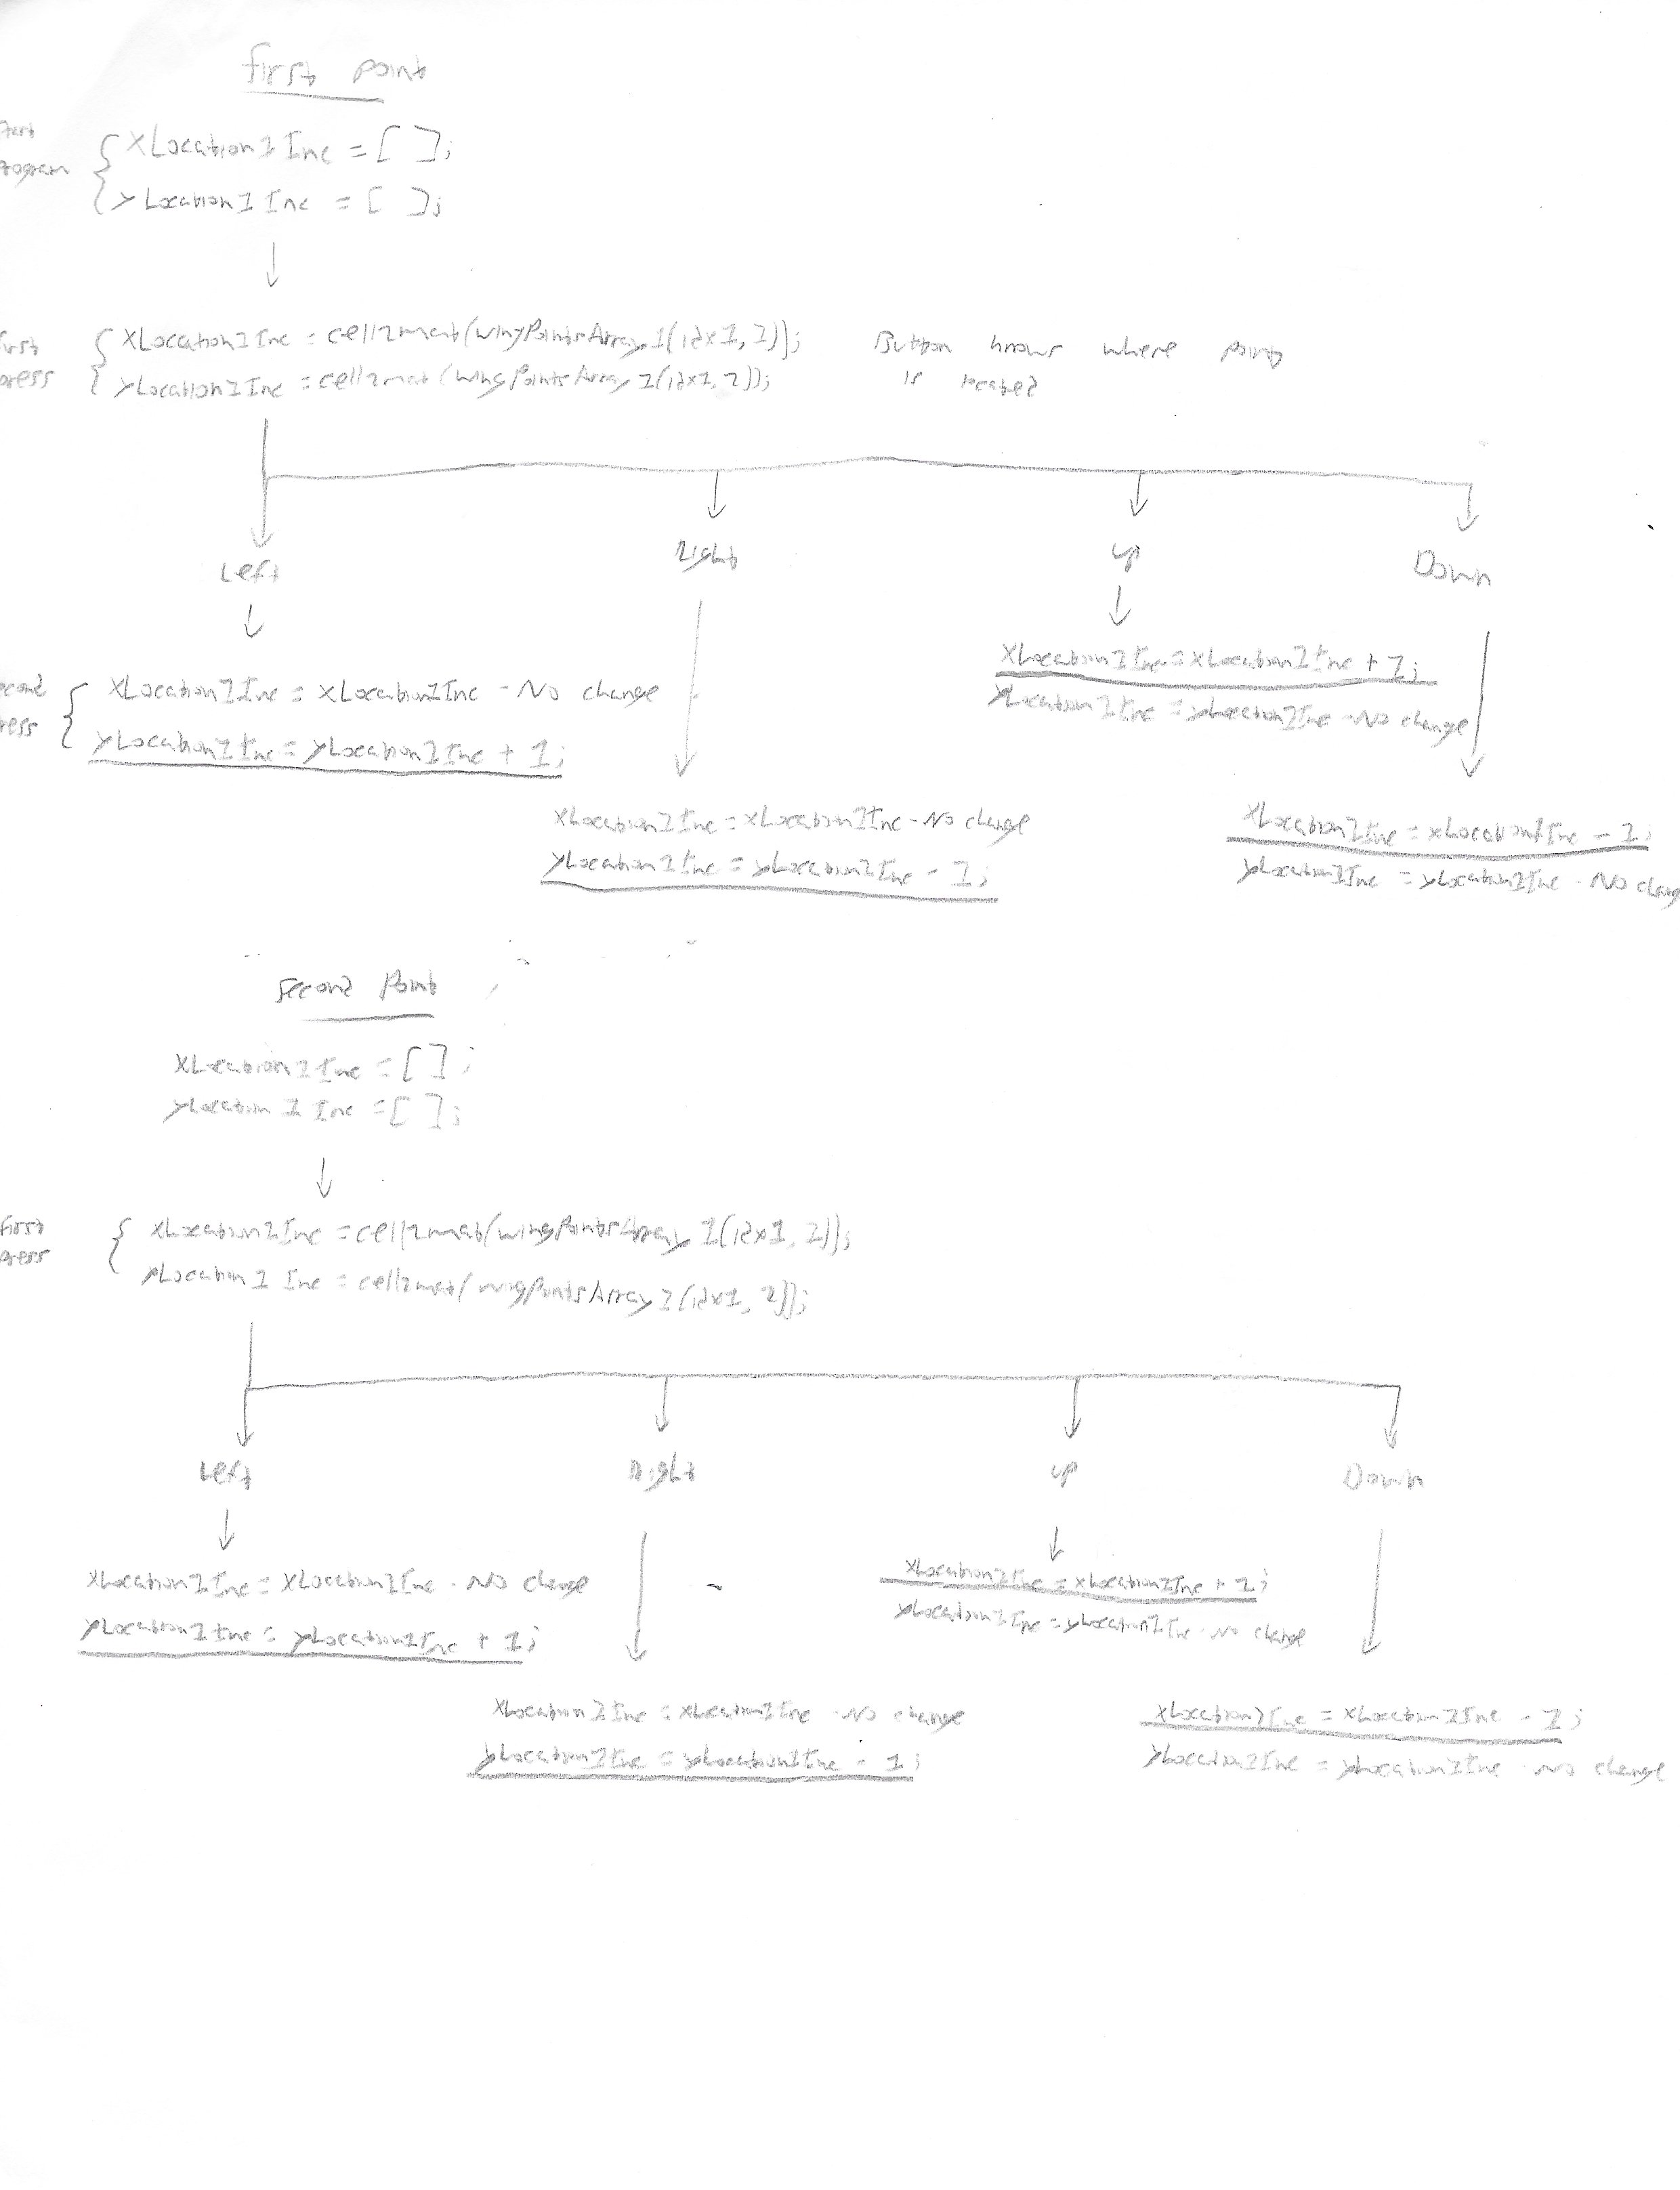 first point
xLocation1Inc = [ ];
yLocation1Inc = [ ];
xLocation1Inc = cell2mat(wingPointsArray1(idx1, 1));
yLocation1Inc = cell2mat(wingPointsArray1(idx1, 2));
Button knows where point
is located
Left
Right
up
Down
xLocation1Inc = xLocation1Inc - No change
yLocation1Inc = yLocation1Inc + 1;
xLocation1Inc = xLocation1Inc + 1;
yLocation1Inc = yLocation1Inc - No change
xLocation1Inc = xLocation1Inc - No change
yLocation1Inc = yLocation1Inc - 1;
xLocation1Inc = xLocation1Inc - 1;
yLocation1Inc = yLocation1Inc - No
Second Point
xLocation1Inc = [ ];
yLocation1Inc = [ ];
First
xLocation1Inc = cell2mat(wingPointsArray1(idx1, 1));
yLocation1Inc = cell2mat(wingPointsArray1(idx1, 2));
Left
Right
up
Down
xLocation1Inc = xLocation1Inc - No change
yLocation1Inc = yLocation1Inc + 1;
xLocation1Inc = xLocation1Inc + 1;
yLocation1Inc = yLocation1Inc - No change
xLocation1Inc = xLocation1Inc - No change
yLocation1Inc = yLocation1Inc - 1;
xLocation1Inc = xLocation1Inc - 1;
yLocation1Inc = yLocation1Inc - No change